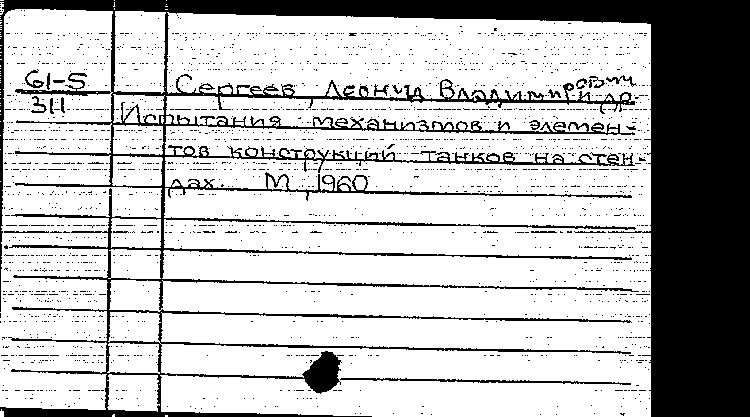 61-5
311
Сергеев, Леонид Владимирович и др.
Испытания механизмов и элемен-
тов конструкций танков на стен-
дах. М, 1960